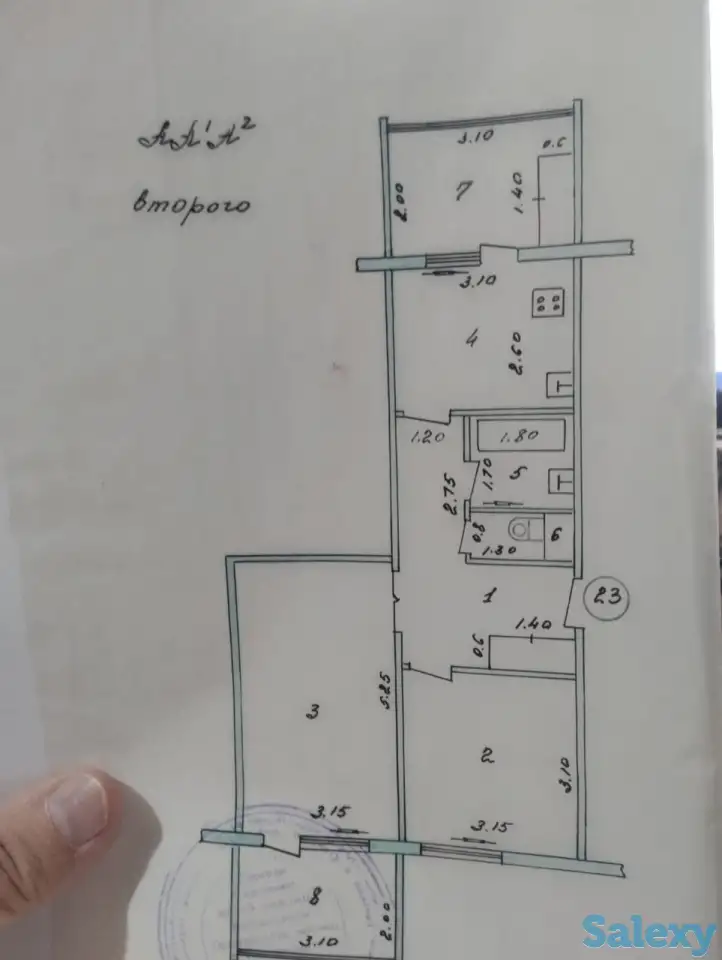 АА¹А²
второго
3.10
0.6
2.00
7
1.40
3.10
4
2.60
1.20
1.80
1.70
5
2.75
0.8
1.30
6
1
23
1.40
0.6
5.25
3
2
3.10
3.15
3.15
8
2.00
3.10
Salexy